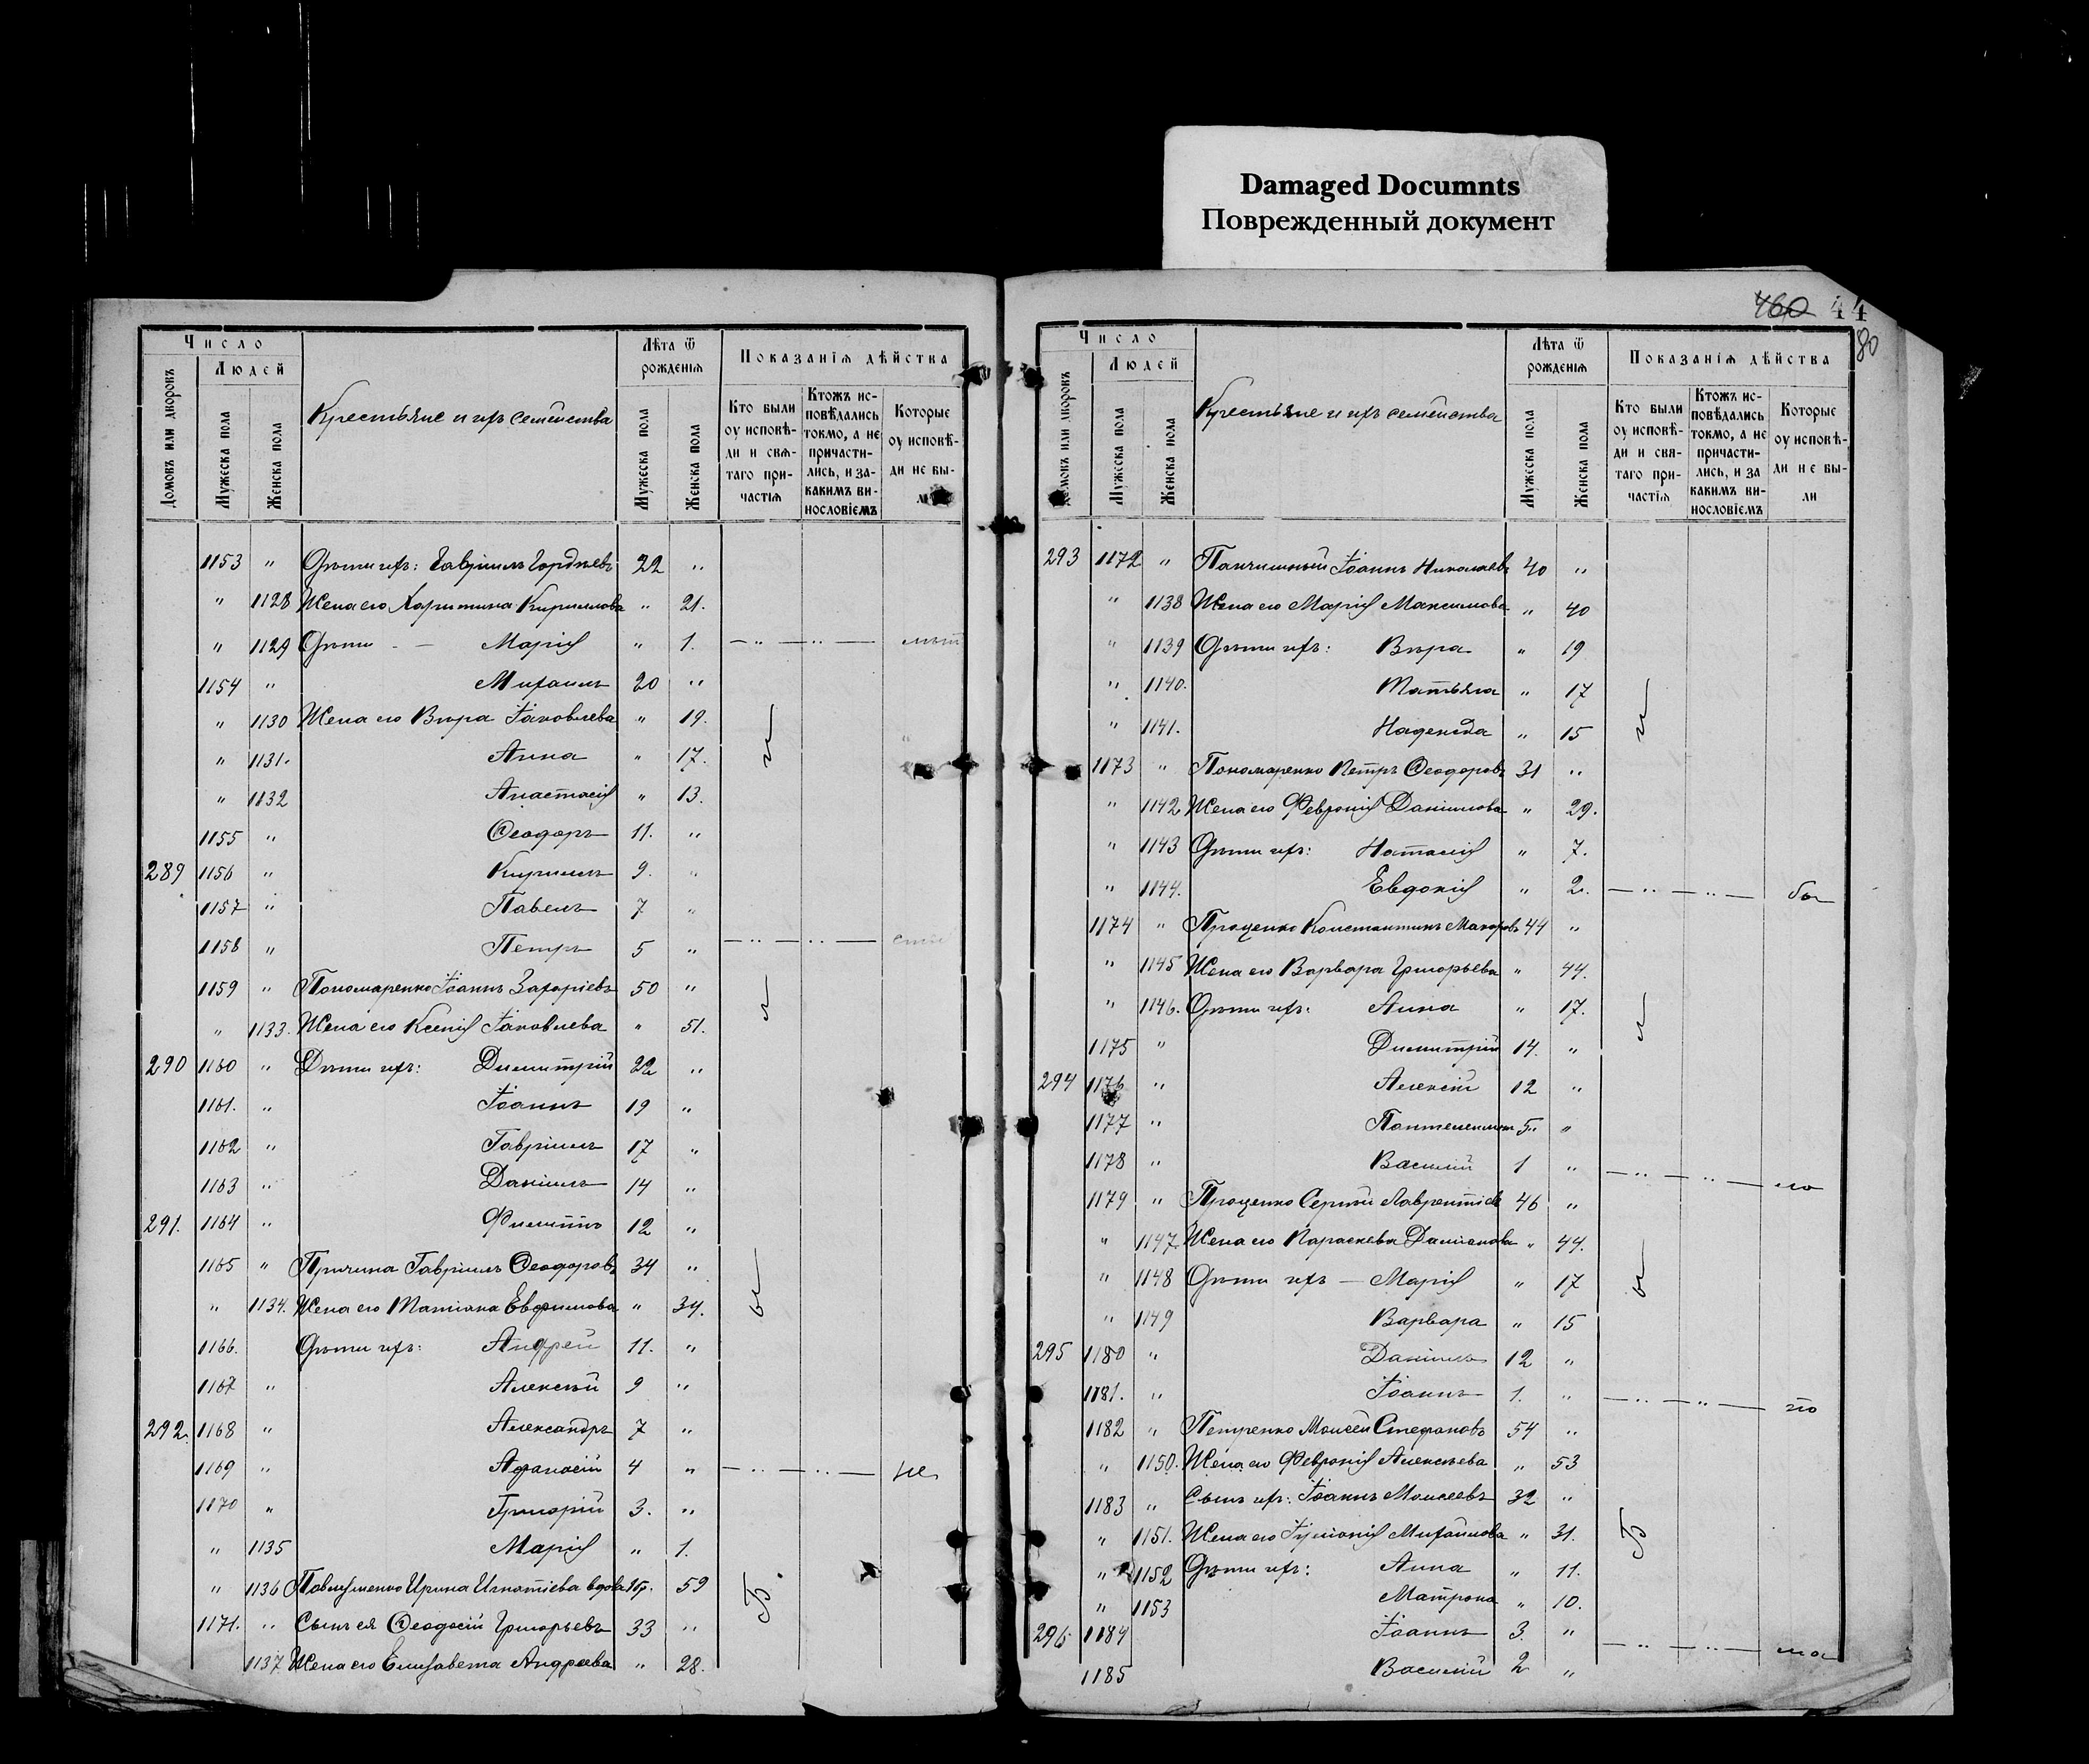 Damaged Documnts
Поврежденный документ
460 44
80
Число
Людей
Домовъ или дворовъ
Мужеска пола
Женска пола
Крестьяне и ихъ семейства
Лѣта ѿ рожденія
Мужеска пола
Женска пола
Показанія дѣйства
Кто были оу исповѣ-
ди и свя-
таго при-
частія
Ктожъ ис-
повѣдались
токмо, а не
причасти-
лись, и за-
какимъ ви-
нословіемъ
Которые
оу исповѣ-
ди не бы-
ли
1153 " Дѣти ихъ: Гавріилъ Гордѣевъ 22 "
" 1128 Жена его Харитина Кириллова " 21.
" 1129 Дѣти - — Марія " 1. — " — " —
1154 " Михаилъ 20 "
" 1130 Жена его Вѣра Іаковлева " 19.
" 1131. Анна " 17.
" 1132 Анастасія " 13.
1155 " Ѳеодоръ 11. "
289 1156 " Кириллъ 9. "
1157 " Павелъ 7 "
1158 " Петръ 5 " — " — " —
1159 " Пономаренко Іоаннъ Захаріевъ 50 "
" 1133. Жена его Ксенія Іаковлева " 51.
290 1160 " Дѣти ихъ: Димитрій 22 "
1161. " Іоаннъ 19 "
1162 " Гавріилъ 17 "
1163 " Даніилъ 14 "
291. 1164 " Филиппъ 12 "
1165 " Причина Гавріилъ Ѳеодоровъ 34 "
" 1134. Жена его Татіана Евфимова " 34.
1166. Дѣти ихъ: Андрей 11. "
1167 " Алексѣй 9 "
292. 1168 " Александръ 7 "
1169 " Афанасій 4 " — " — " — не
1170 " Григорій 3. "
" 1135 Марія " 1.
" 1136 Ирина Игнатіева вдова 59
1171. " Сынъ ея Ѳеодосій Григорьевъ 33 "
1137 Жена его Елизавета Андреева " 28.
Число
Людей
Домовъ или дворовъ
Мужеска пола
Женска пола
Крестьяне и ихъ семейства
Лѣта ѿ рожденія
Мужеска пола
Женска пола
Показанія дѣйства
Кто были
оу исповѣ-
ди и свя-
таго при-
частія
Ктожъ ис-
повѣдались
токмо, а не
причасти-
лись, и за
какимъ ви-
нословіемъ
Которые
оу исповѣ-
ди не бы-
ли
293 1172 " Іоаннъ Николаевъ 40 "
" 1138 Жена его Марія Максимова " 40
" 1139 Дѣти ихъ: Вѣра " 19
" 1140. Татьяна " 17
" 1141. Надежда " 15
1173 " Пономаренко Петръ Ѳеодоровъ 31 "
" 1142 Жена его Февронія Даніилова " 29.
" 1143 Дѣти ихъ: Наталія " 7.
" 1144. Евдокія " 2. — " — " — бы
1174 " Проценко Константинъ Макаровъ 44 "
" 1145 Жена его Варвара Григорьева " 44.
" 1146. Дѣти ихъ: Анна " 17.
1175 " Димитрій 14. "
294 1176 " Алексій 12 "
1177 " Пантелеимонъ 5 "
1178 " Василій 1 " — " — " — ло
1179 " Проценко Сергій Лаврентіевъ 46 "
" 1147. Жена его Параскева Даміанова " 44.
" 1148 Дѣти ихъ — Марія " 17
" 1149 Варвара " 15
295 1180 " Даніилъ 12 "
1181. " Іоаннъ 1. " — " — " — по
1182 " Петренко Моисей Стефановъ 54 "
" 1150. Жена его Февронія Алексѣева " 53
1183 " Сынъ ихъ: Іоаннъ Моисеевъ 32 "
" 1151. Жена его Іуліанія Михайлова " 31.
" 1152 Дѣти ихъ: Анна " 11.
" 1153 Матрона " 10.
296 1184 Іоаннъ 3. " — " — " — ло
1185 Василій 2 "